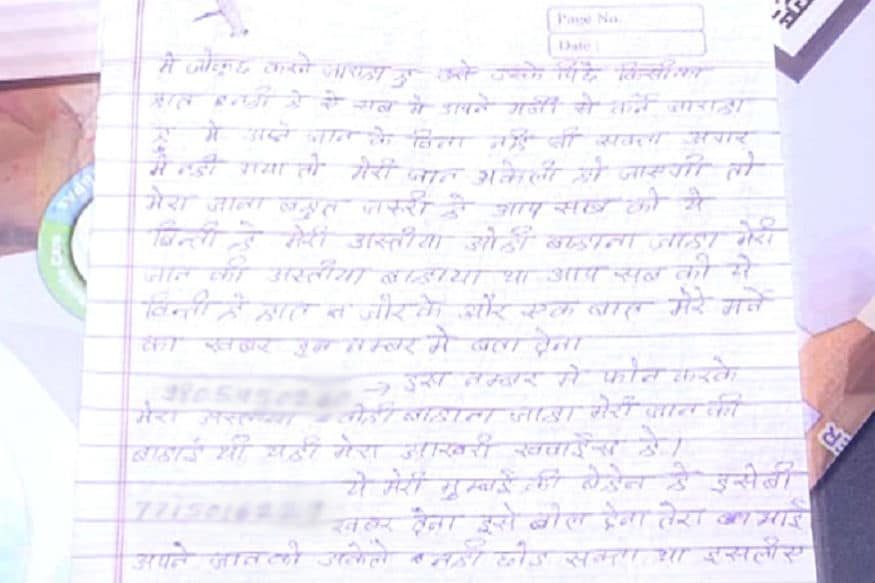 Page No.
Date :
मे जोकुछ करने जारहा हु उसे उसके पिछे किसीका
हात नही हे ये सब मे अपने मर्जी से करने जारहा
हु मे अपने जान के बिना नही जी सकता अगर
मे नही गया तो मेरी जान अकेली हो जाएगी तो
मेरा जाना बहुत जरुरी हे आप सब को ये
बिन्ती हे मेरी अस्तीया ओही बाहाना जाहा मेरी
जान की अस्तीया बाहाया था आप सब को ये
विन्ती हे हात जोरके और एक बात मेरे मर्ने
का खबर इन नम्बर मे बता देना
→ इस नम्बर मे फोन करके
मेरा ओही बाहाना जाहा मेरी जान की
बाहाई थी यही मेरा आखरी हे।
ये मेरी मुम्बई की हे इसेबी
खबर देना इसे बोल देना तेरा भाई
अपने जानको अकेले नही छोड सकता था इसलीए